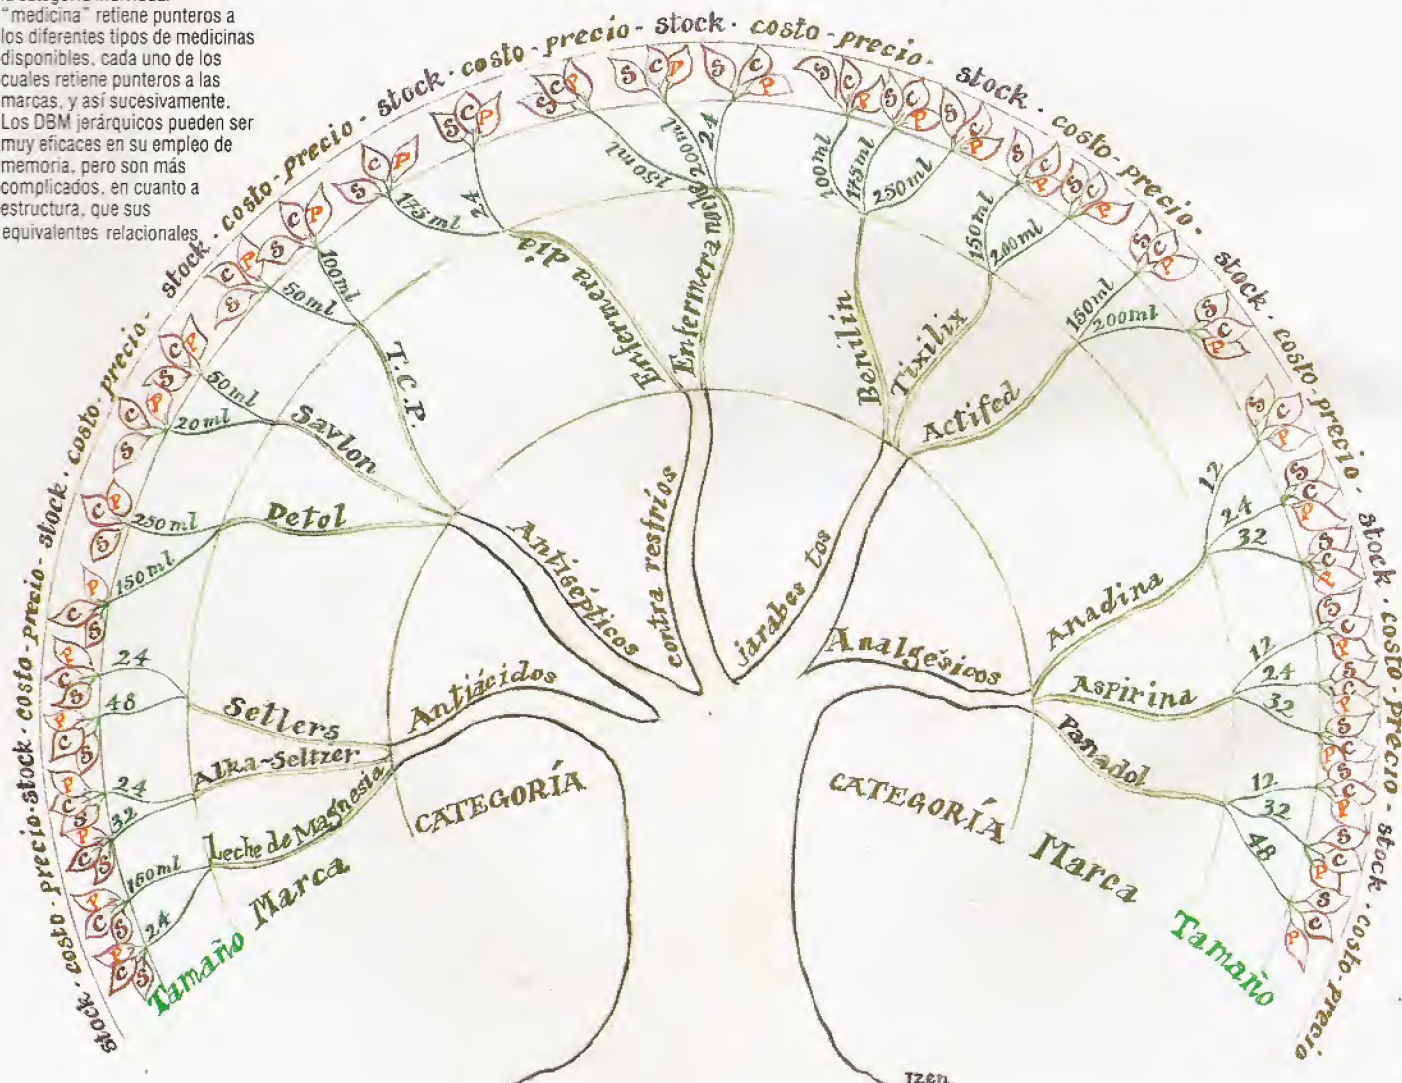 "medicina" retiene punteros a
los diferentes tipos de medicinas
disponibles, cada uno de los
cuales retiene punteros a las
marcas, y así sucesivamente.
Los DBM jerárquicos pueden ser
muy eficaces en su empleo de
memoria, pero son más
complicados, en cuanto a
estructura, que sus
equivalentes relacionales
stock · costo · precio - stock · costo - precio - stock · costo · precio - stock · costo - precio - stock · costo - precio - stock · costo - precio - stock · costo - precio - stock · costo - precio - stock · costo - precio - stock · costo - precio
Antiácidos
Leche de Magnesia
24
150ml
Alka-Seltzer
32
24
Setlers
48
24
Antisépticos
Detol
150ml
250ml
Savlon
20ml
50ml
T.C.P.
50ml
100ml
contra resfríos
Enfermera día
175ml
24
Enfermera noche
150ml
200ml
24
jarabes tos
Benilín
100ml
175ml
250ml
Tixilix
150ml
200ml
Actifed
150ml
200ml
Analgésicos
Anadina
12
24
32
Aspirina
12
24
32
Panadol
12
32
48
S C P
CATEGORÍA
Marca
Tamaño
CATEGORÍA
Marca
Tamaño